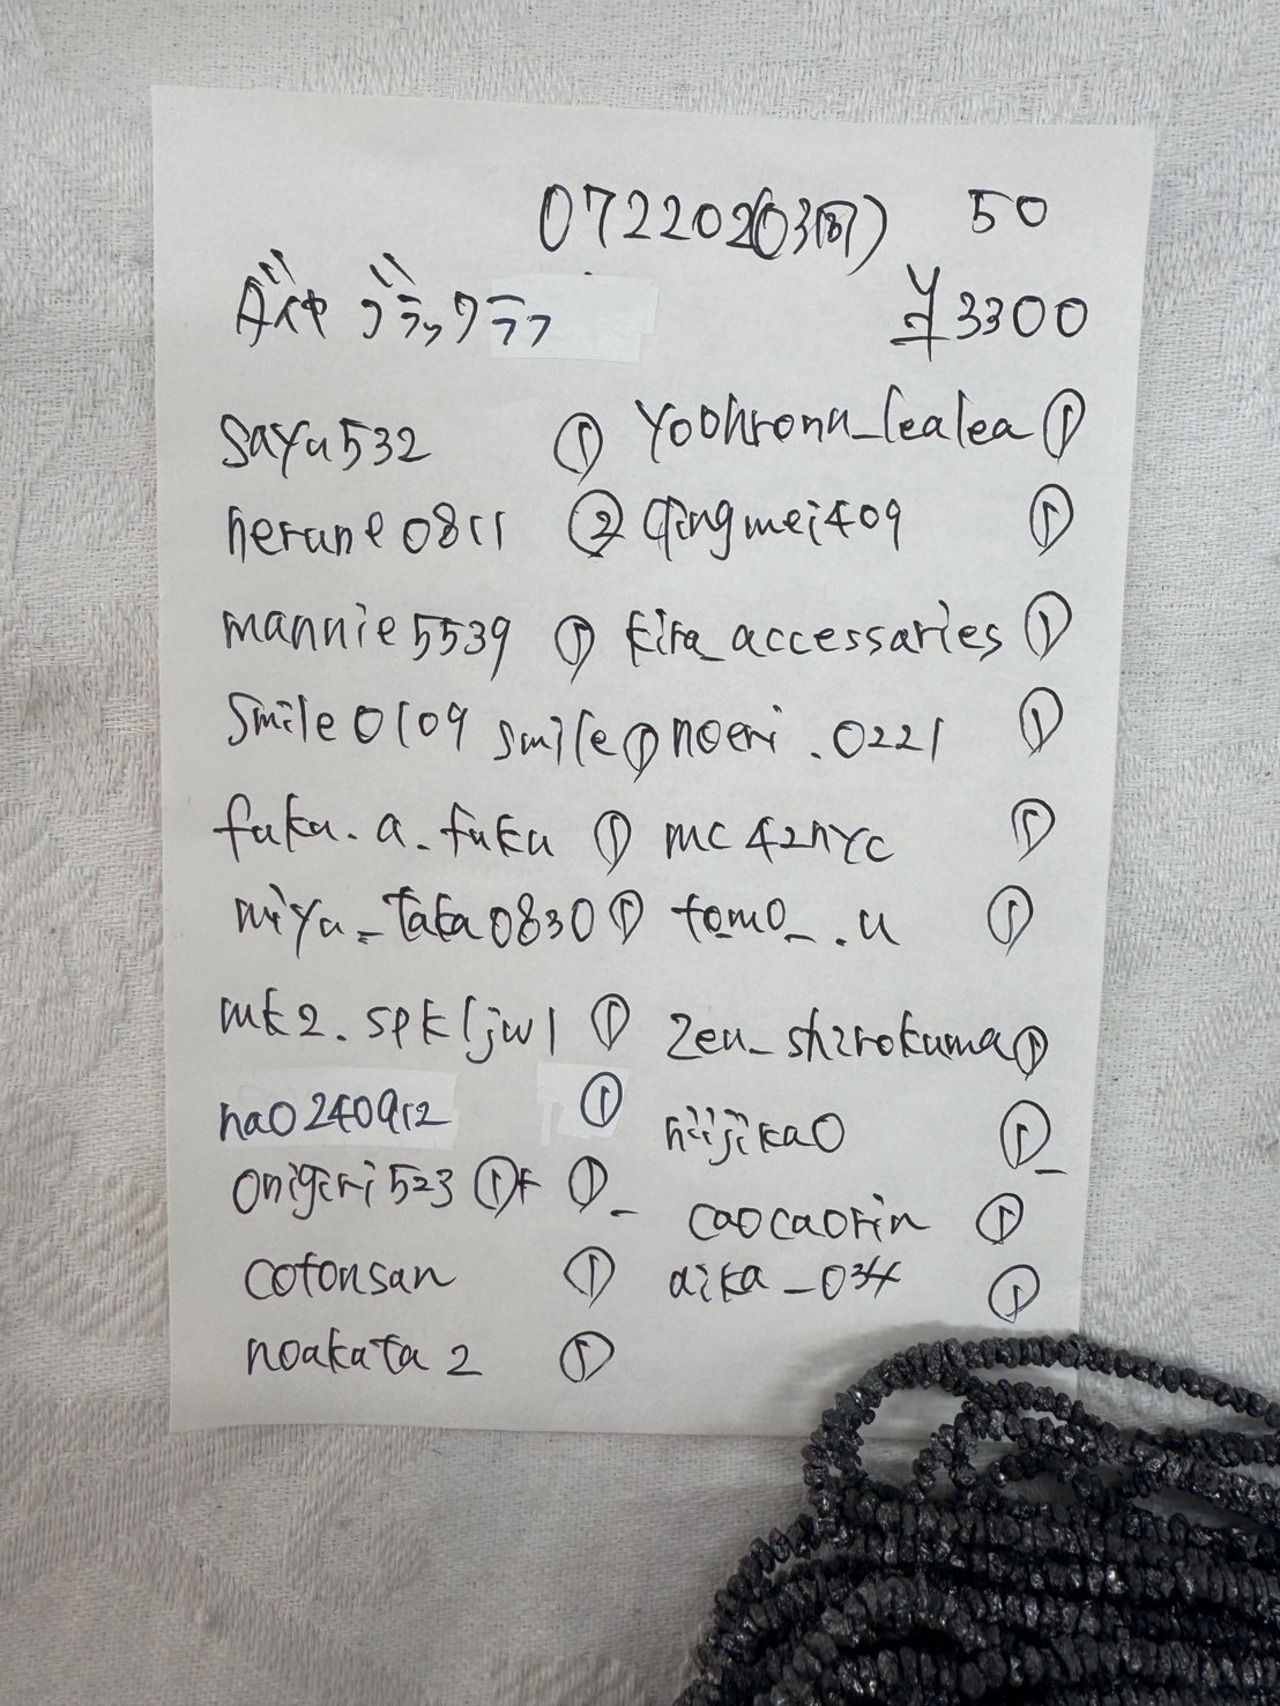 072202(03(8)) 50
ダイヤ ブラックラフ ¥3300
sayu532 ① yoohronu_lealea ①
herune0811 ② qingmei409 ①
mannie5539 ① kira_accessaries ①
smile0109smile ① noeri.0221 ①
fuku.a.fuku ① mc42nyc ①
miyu_taka0830 ① tomo_.u ①
mk2.spkljw1 ① zeu_shirokuma ①
nao240912 ① niijika0 ①
onigiri523 ① ①
caocaorin ①
cotonsan ① aika_034 ①
noakata2 ①